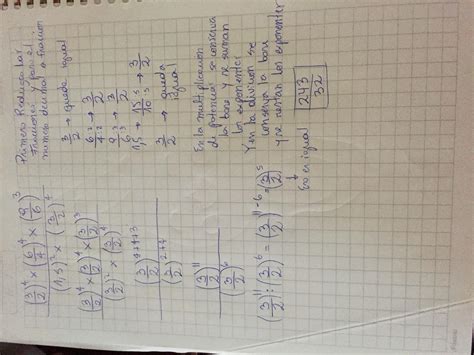 (3/2)⁴ × (6/4)⁴ × (9/6)³
(1,5)² × (3/2)⁴
(3/2)⁴ × (3/2)⁴ × (3/2)³
(3/2)² × (3/2)⁴
(3/2)⁴⁺⁴⁺³
(3/2)²⁺⁴
(3/2)¹¹
(3/2)⁶
(3/2)¹¹ : (3/2)⁶ = (3/2)¹¹⁻⁶ = (3/2)⁵
↓
Eso es igual
243/32
Primero Reduzco las
fracciones y paso el
numero decimal a fraccion
3/2 → queda igual
6:2/4:2 → 3/2
9:3/6:3 → 3/2
1,5 → 15:5/10:5 → 3/2
3/2 → queda
igual
En la multiplicacion
de potencias se conserva
las base y se suman
los exponentes
Y en la division se
conserva la base
y se restan los exponentes